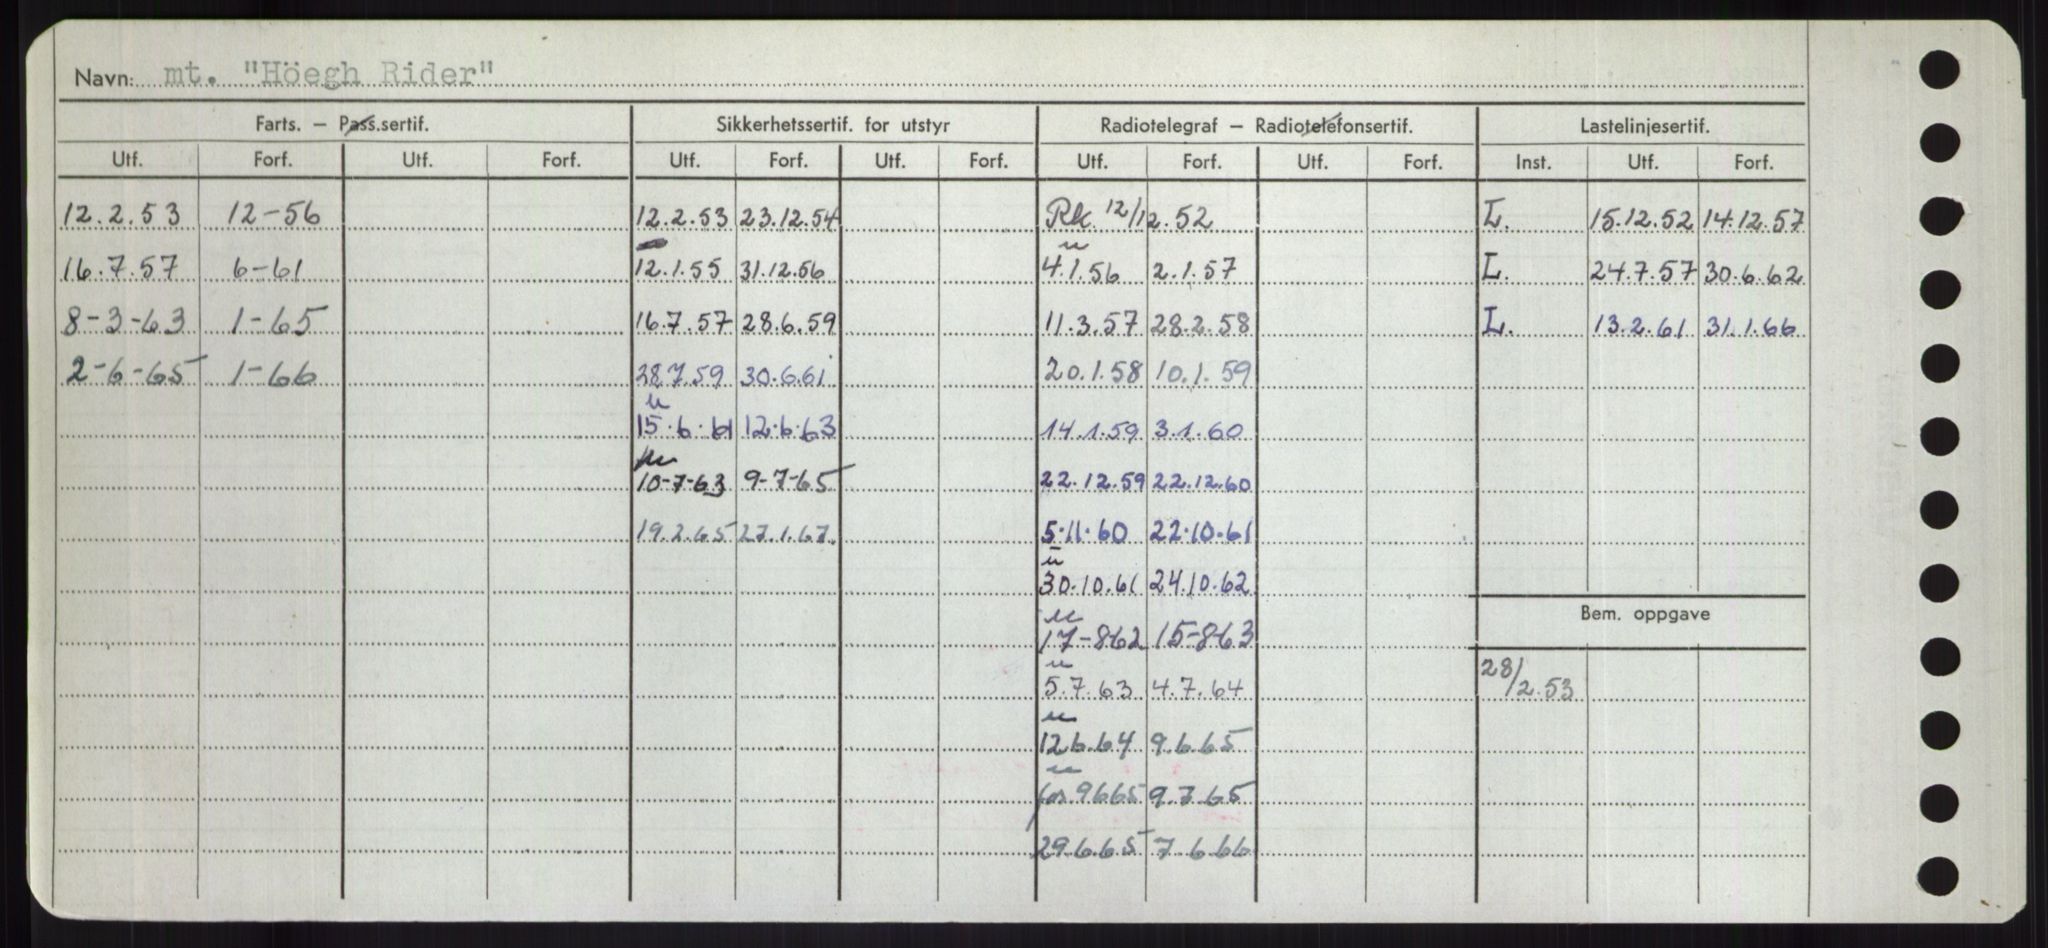 Navn: mt. "Höegh Rider"
Farts. – Pass.sertif. Sikkerhetssertif. for utstyr Radiotelegraf – Radiotelefonsertif. Lastelinjesertif.
Utf. Forf. Utf. Forf. Utf. Forf. Utf. Forf. Utf. Forf. Utf. Forf. Inst. Utf. Forf.
12.2.53 12-56 12.2.53 23.12.54 Rk. 12/12.52 L. 15.12.52 14.12.57
u
16.7.57 6-61 12.1.55 31.12.56 4.1.56 2.1.57 L. 24.7.57 30.6.62
8-3-63 1-65 16.7.57 28.6.59 11.3.57 28.2.58 L. 13.2.61 31.1.66
2-6-65 1-66 28.7.59 30.6.61 20.1.58 10.1.59
u
15.6.61 12.6.63 14.1.59 3.1.60
10-7-63 9-7-65 22.12.59 22.12.60
19.2.65 27.1.67. 5.11.60 22.10.61
u
30.10.61 24.10.62
u
Bem. oppgave
17-862 15-863
u
28/2.53
5.7.63 4.7.64
u
12664 9.6.65
u
9665 9.7.65
29.6.65 7.6.66